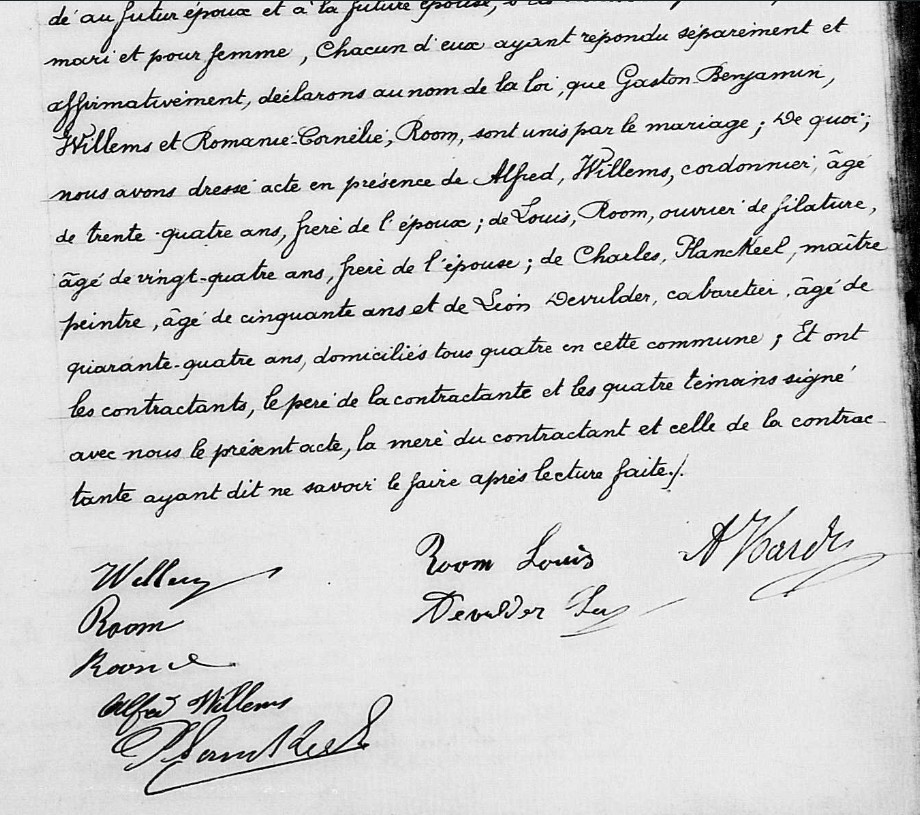 dé au futur époux et à la future épouse,
mari et pour femme, Chacun d'eux ayant répondu séparément et
affirmativement, déclarons au nom de la loi, que Gaston-Benjamin,
Willems et Romanie-Cornélie, Room, sont unis par le mariage; De quoi;
nous avons dressé acte en présence de Alfred, Willems, cordonnier, âgé
de trente-quatre ans, frère de l'époux; de Louis, Room, ouvrier de filature,
âgé de vingt-quatre ans, frère de l'épouse; de Charles, Planckeel, maître
peintre, âgé de cinquante ans et de Léon Devulder, cabaretier, âgé de
quarante-quatre ans, domiciliés tous quatre en cette commune; Et ont
les contractants, le père de la contractante et les quatre témoins signé
avec nous le présent acte, la mère du contractant et celle de la contrac-
tante ayant dit ne savoir le faire après lecture faite./.
Room Louis
Willems
Devulder
Room
Room
Alfred Willems
Planckeel